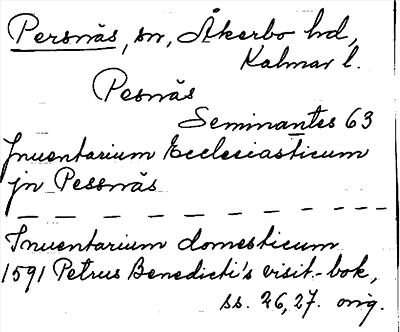 Persnäs, sn, Åkerbo hd,
Kalmar l.
Pesnäs
Seminantes 63
Jnuentarium Ecclesiasticum
jn Pessnäs
Inuentarium domesticum
1591 Petrus Benedicti's visit.-bok,
ss. 26, 27. orig.